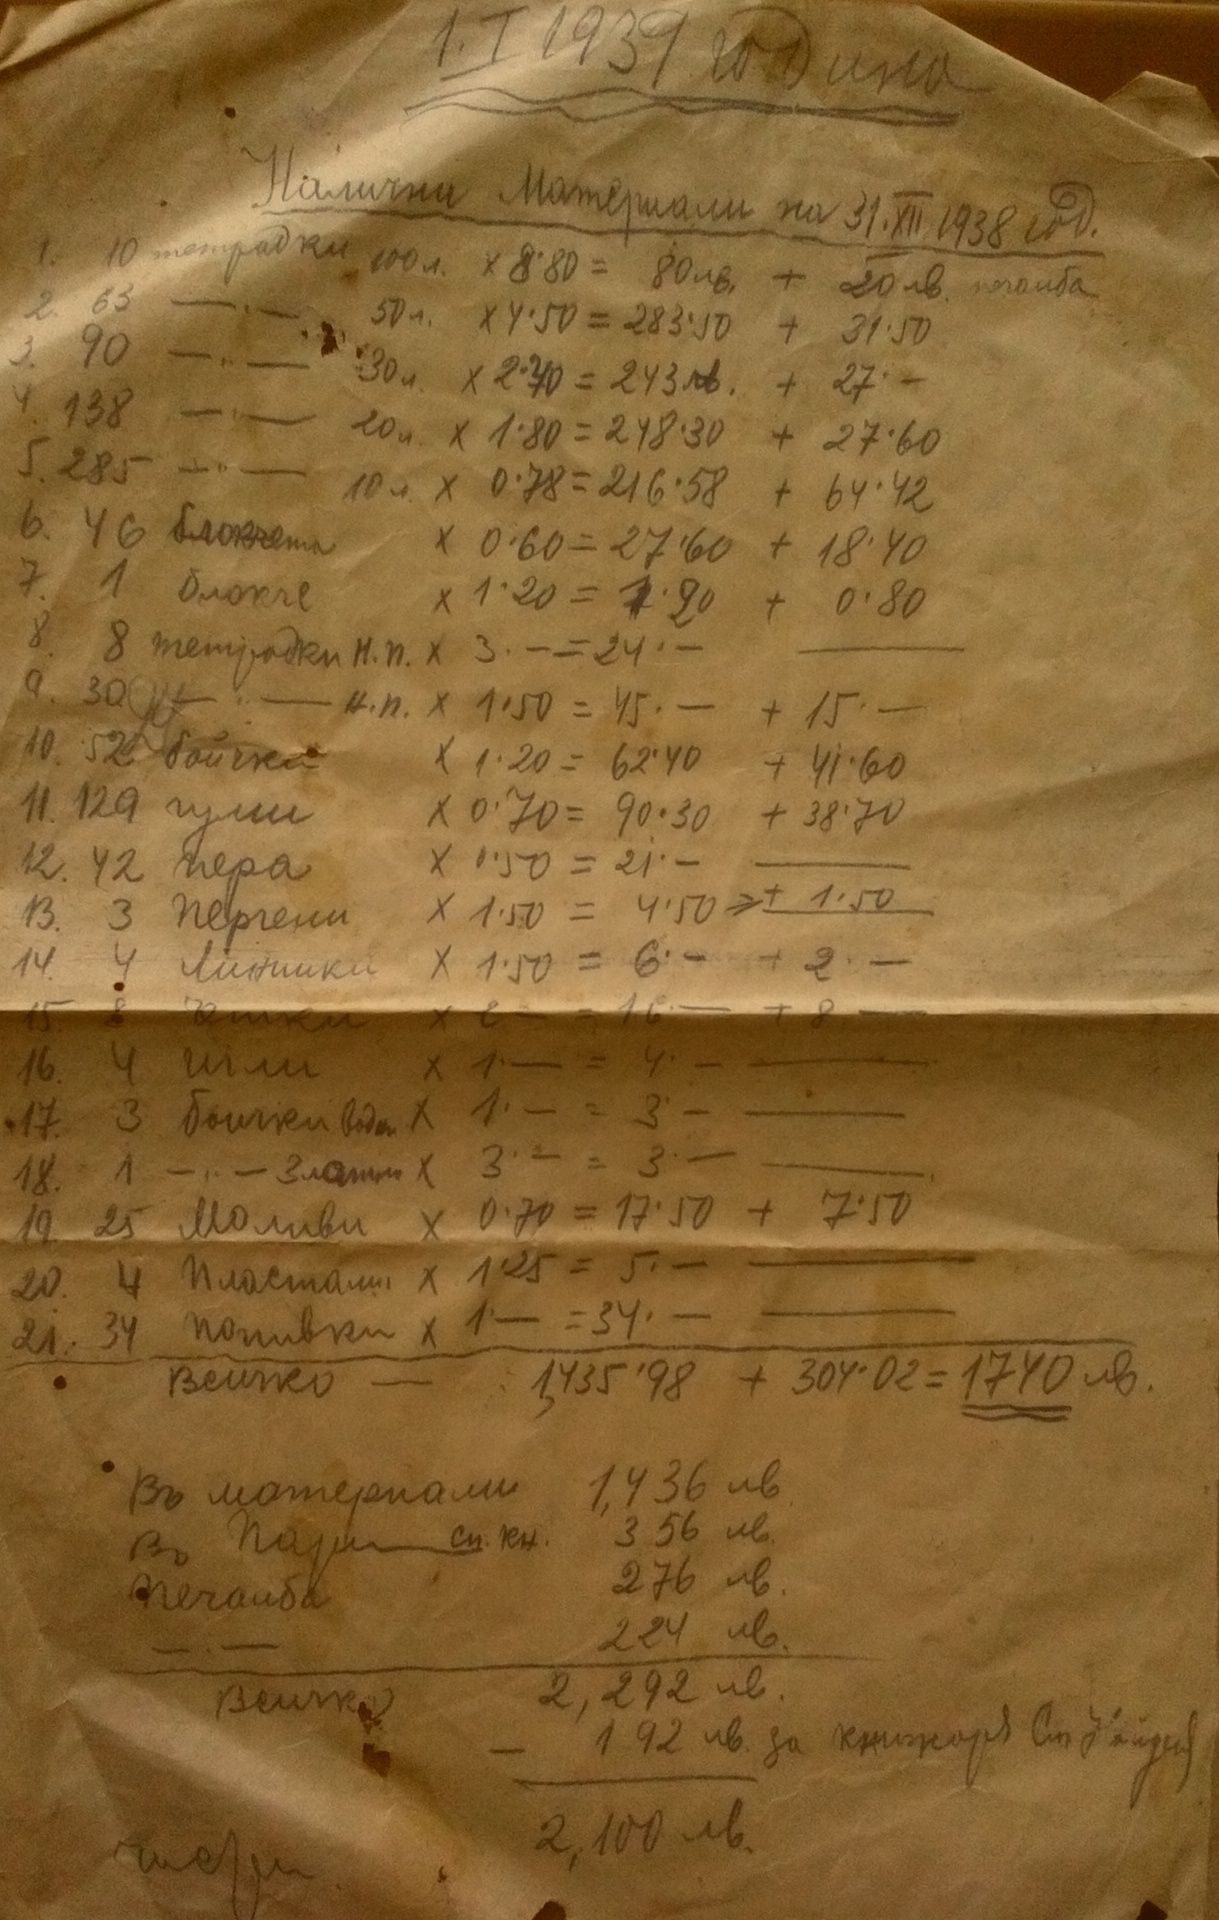 1.I 1939 година
Налични Материали на 31.XII.1938 год.
1. 10 тетрадки 100 л. x 8·80 = 80 лв. + 20 лв. печалба
2. 63 —〃— 50 л. x 4·50 = 283·50 + 31·50
3. 90 —〃— 30 л. x 2·70 = 243 лв. + 27·—
4. 138 —〃— 20 л. x 1·80 = 248·30 + 27·60
5. 285 —〃— 10 л. x 0·78 = 216·58 + 64·42
6. 46 блокчета x 0·60 = 27·60 + 18·40
7. 1 блокче x 1·20 = 1·20 + 0·80
8. 8 тетрадки н.п. x 3·— = 24·— —
9. 30 —〃— н.п. x 1·50 = 45·— + 15·—
10. 52 боички x 1·20 = 62·40 + 41·60
11. 129 гуми x 0·70 = 90·30 + 38·70
12. 42 пера x 0·50 = 21·— —
13. 3 Пергели x 1·50 = 4·50 + 1·50
14. 4 Линийки x 1·50 = 6·— + 2·—
15. 8 x 2·— = 16·— + 8·—
16. 4 игли x 1·— = 4·— —
17. 3 боички водни x 1·— = 3·— —
18. 1 —〃— Златни x 3·— = 3·— —
19. 25 Моливи x 0·70 = 17·50 + 7·50
20. 4 Пластелин x 1·25 = 5·— —
21. 34 Попивки x 1·— = 34·— —
Всичко — 1,435·98 + 304·02 = 1740 лв.
Въ материали 1,436 лв
Въ Пари сп. кн. 356 лв.
Печалба 276 лв.
—〃— 224 лв.
Всичко 2,292 лв.
— 192 лв. за книжаря
2,100 лв.